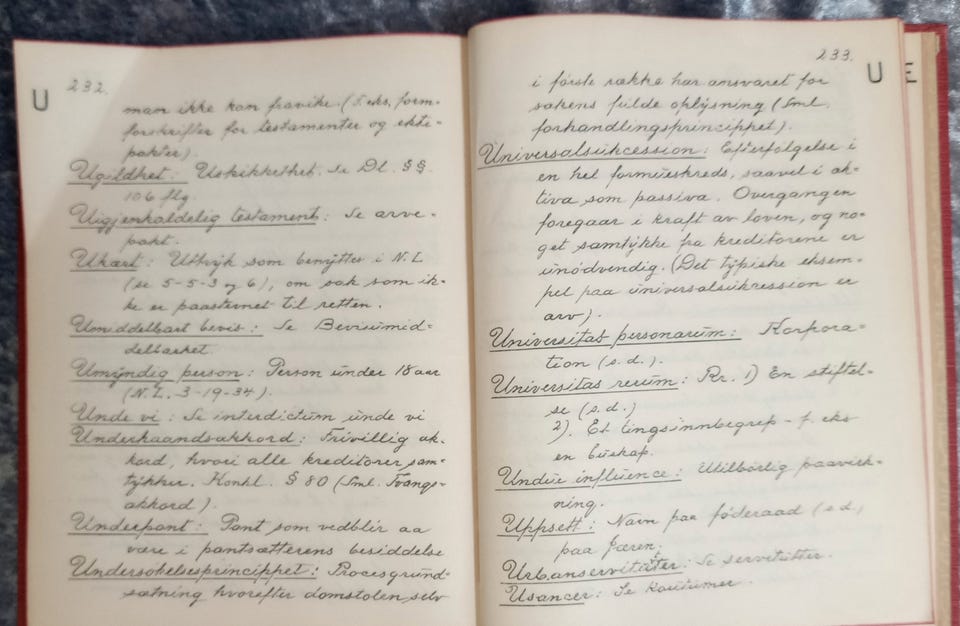 232.
U
man ikke kan fravike. (F. eks. form-
forskrifter for testamenter og ekte-
pakter).
Ugildhet: Uskikkethet. Se Dl. §§
106 flg.
Uigjenkaldelig testament: Se arve-
pakt.
Ukært: Uttryk som benyttes i N.L
(se 5-5-3 og 6), om sak som ik-
ke er paastevnet til retten.
Umiddelbart bevis: Se Bevisumid-
delbarhet.
Umyndig person: Person under 18 aar
(N.L. 3-19-34).
Unde vi: Se interdictum unde vi
Underhaandsakkord: Frivillig ak-
kord, hvori alle kreditorer sam-
tykker. Konkl. § 80 (Sml. Tvangs-
akkord).
Underpant: Pant som vedblir aa
være i pantsætterens besiddelse
Undersøkelsesprincippet: Procesgrund-
sætning hvorefter domstolen selv
233.
U
E
i første række har ansvaret for
sakens fulde oplysning (Sml.
forhandlingsprincippet).
Universalsuksession: Efterfølgelse i
en hel formueskreds, saavel i ak-
tiva som passiva. Overgangen
foregaar i kraft av loven, og no-
get samtykke fra kreditorene er
unødvendig. (Det typiske eksem-
pel paa universalsuksession er
arv).
Universitas personarum: Korpora-
tion (s.d.).
Universitas rerum: Rr. 1) En stiftel-
se (s.d.)
2). Et tingsinnbegrep - f. eks
en buskap.
Undue influence: Utilbørlig paavirk-
ning.
Uppsett: Navn paa føderaad (s.d.)
paa Jæren.
Urbanservitutter: Se servitutter.
Usancer: Se Koutumer